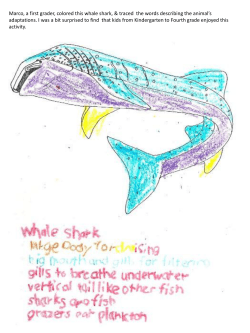 Marco, a first grader, colored this whale shark, & traced the words describing the animal's
adaptations. I was a bit surprised to find that kids from Kindergarten to Fourth grade enjoyed this
activity.
whale shark
large body for cruising
big mouth and gill for filtering
gills to breathe underwater
vertical tail like other fish
sharks are fish
grazers eat plankton